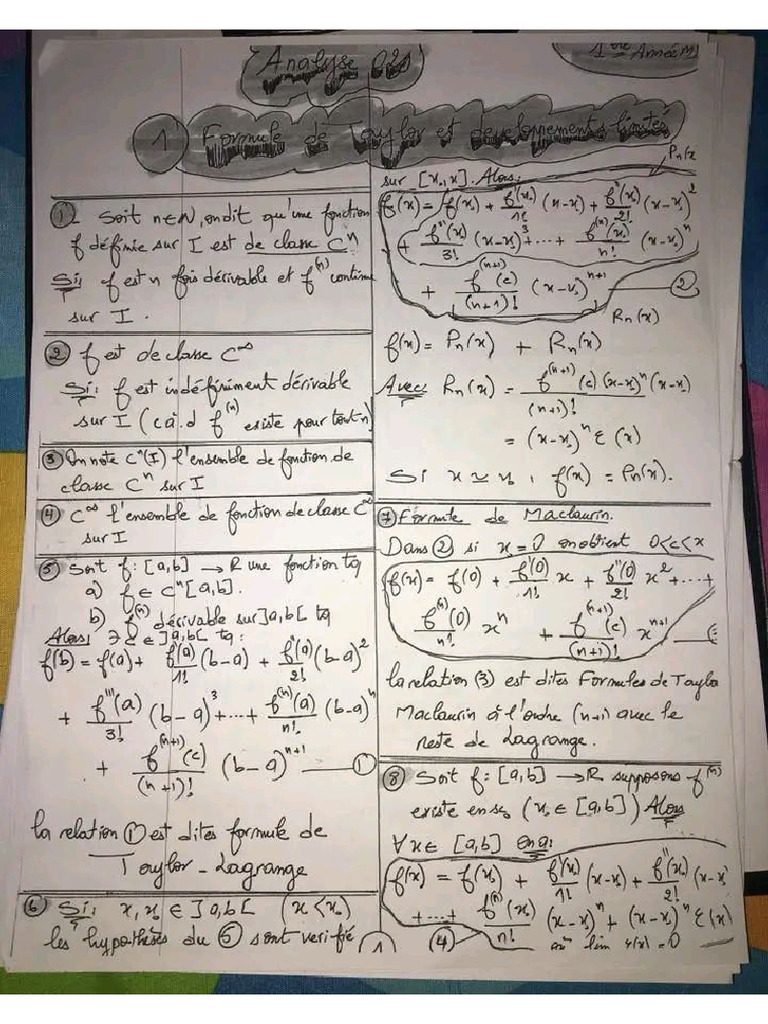 Analyse 02
1ère Année M
1 Formule de Taylor et développements limités
① Soit n∈N, on dit qu'une fonction
f définie sur I est de classe Cⁿ
Si; f est n fois dérivable et f⁽ⁿ⁾ continue
sur I.
② f est de classe C^∞
Si: f est indéfiniment dérivable
sur I (cà.d f⁽ⁿ⁾ existe pour tout n)
③ On note Cⁿ(I) l'ensemble de fonction de
classe Cⁿ sur I
④ C^∞ l'ensemble de fonction de classe C^∞
sur I
⑤ Soit f: [a,b] → R une fonction tq
a) f ∈ Cⁿ[a,b].
b) f⁽ⁿ⁾ dérivable sur ]a,b[ tq
Alors; ∃ c ∈ ]a,b[ tq:
f(b) = f(a) + f'(a)/1! (b-a) + f''(a)/2! (b-a)²
+ f'''(a)/3! (b-a)³ + ... + f⁽ⁿ⁾(a)/n! (b-a)ⁿ
+ f⁽ⁿ⁺¹⁾(c)/(n+1)! (b-a)ⁿ⁺¹ — ①
la relation ① est dites formule de
Taylor - Lagrange
⑥ Si: x, x₀ ∈ ]a,b[ (x < x₀)
les hypothèses du ⑤ sont verifié
1
sur [x₀,x]. Alors:
Pn(x
f(x) = f(x₀) + f'(x₀)/1! (x-x₀) + f''(x₀)/2! (x-x₀)²
+ f'''(x₀)/3! (x-x₀)³ + ... + f⁽ⁿ⁾(x₀)/n! (x-x₀)ⁿ
+ f⁽ⁿ⁺¹⁾(c)/(n+1)! (x-x₀)ⁿ⁺¹ — ②
Rn(x)
f(x) = Pn(x) + Rn(x)
Avec Rn(x) = f⁽ⁿ⁺¹⁾(c)(x-x₀)ⁿ(x-x₀)/(n+1)!
= (x-x₀)ⁿ ε(x)
Si x ≃ x₀, f(x) = Pn(x).
⑦ Formule de Maclaurin.
Dans ② si x₀=0 on obtient 0<c<x
f(x) = f(0) + f'(0)/1! x + f''(0)/2! x² + ... +
f⁽ⁿ⁾(0)/n! xⁿ + f⁽ⁿ⁺¹⁾(c)/(n+1)! xⁿ⁺¹ —
la relation (3) est dites Formules de Taylo
Maclaurin à l'ordre (n+1) avec le
reste de Lagrange.
⑧ Soit f: [a,b] → R supposons f⁽ⁿ⁾
existe en x₀ (x₀ ∈ [a,b]) Alors
∀x∈ [a,b] on a:
f(x) = f(x₀) + f'(x₀)/1! (x-x₀) + f''(x₀)/2! (x-x₀
+ ... + f⁽ⁿ⁾(x₀)/n! (x-x₀)ⁿ + (x-x₀)ⁿ ε(x)
④ où lim ε(x) = 0